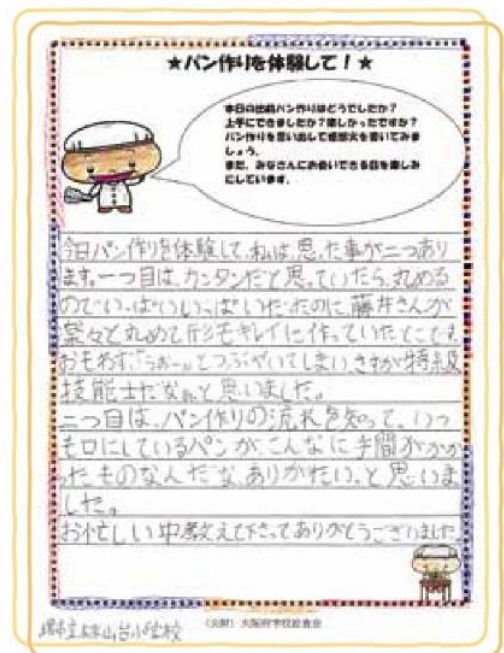 ★パン作りを体験して！★
本日の出前パン作りはどうでしたか？
上手にできましたか？楽しかったですか？
パン作りを思い出して感想文を書いてみま
しょう。
また、みなさんにお会いできる日を楽しみ
にしています。
今日パン作りを体験して、私は、思った事が二つあり
ます。一つ目は、カンタンだと思っていたら、丸める
のでいっぱいいっぱいだったのに、藤井さんが
楽々と丸めて形もキレイに作っていたとこです。
おもわず、「うおー。」とつぶやいてしまい、さすが特級
技能士だなぁ。と思いました。
二つ目は、パン作りの流れを知って、いつ
も口にしているパンが、こんなに手間がかか
ったものなんだな、ありがたい。と思いま
した。
お忙しい中教えて下さってありがとうございました。
台小学校
（公財）大阪府学校給食会